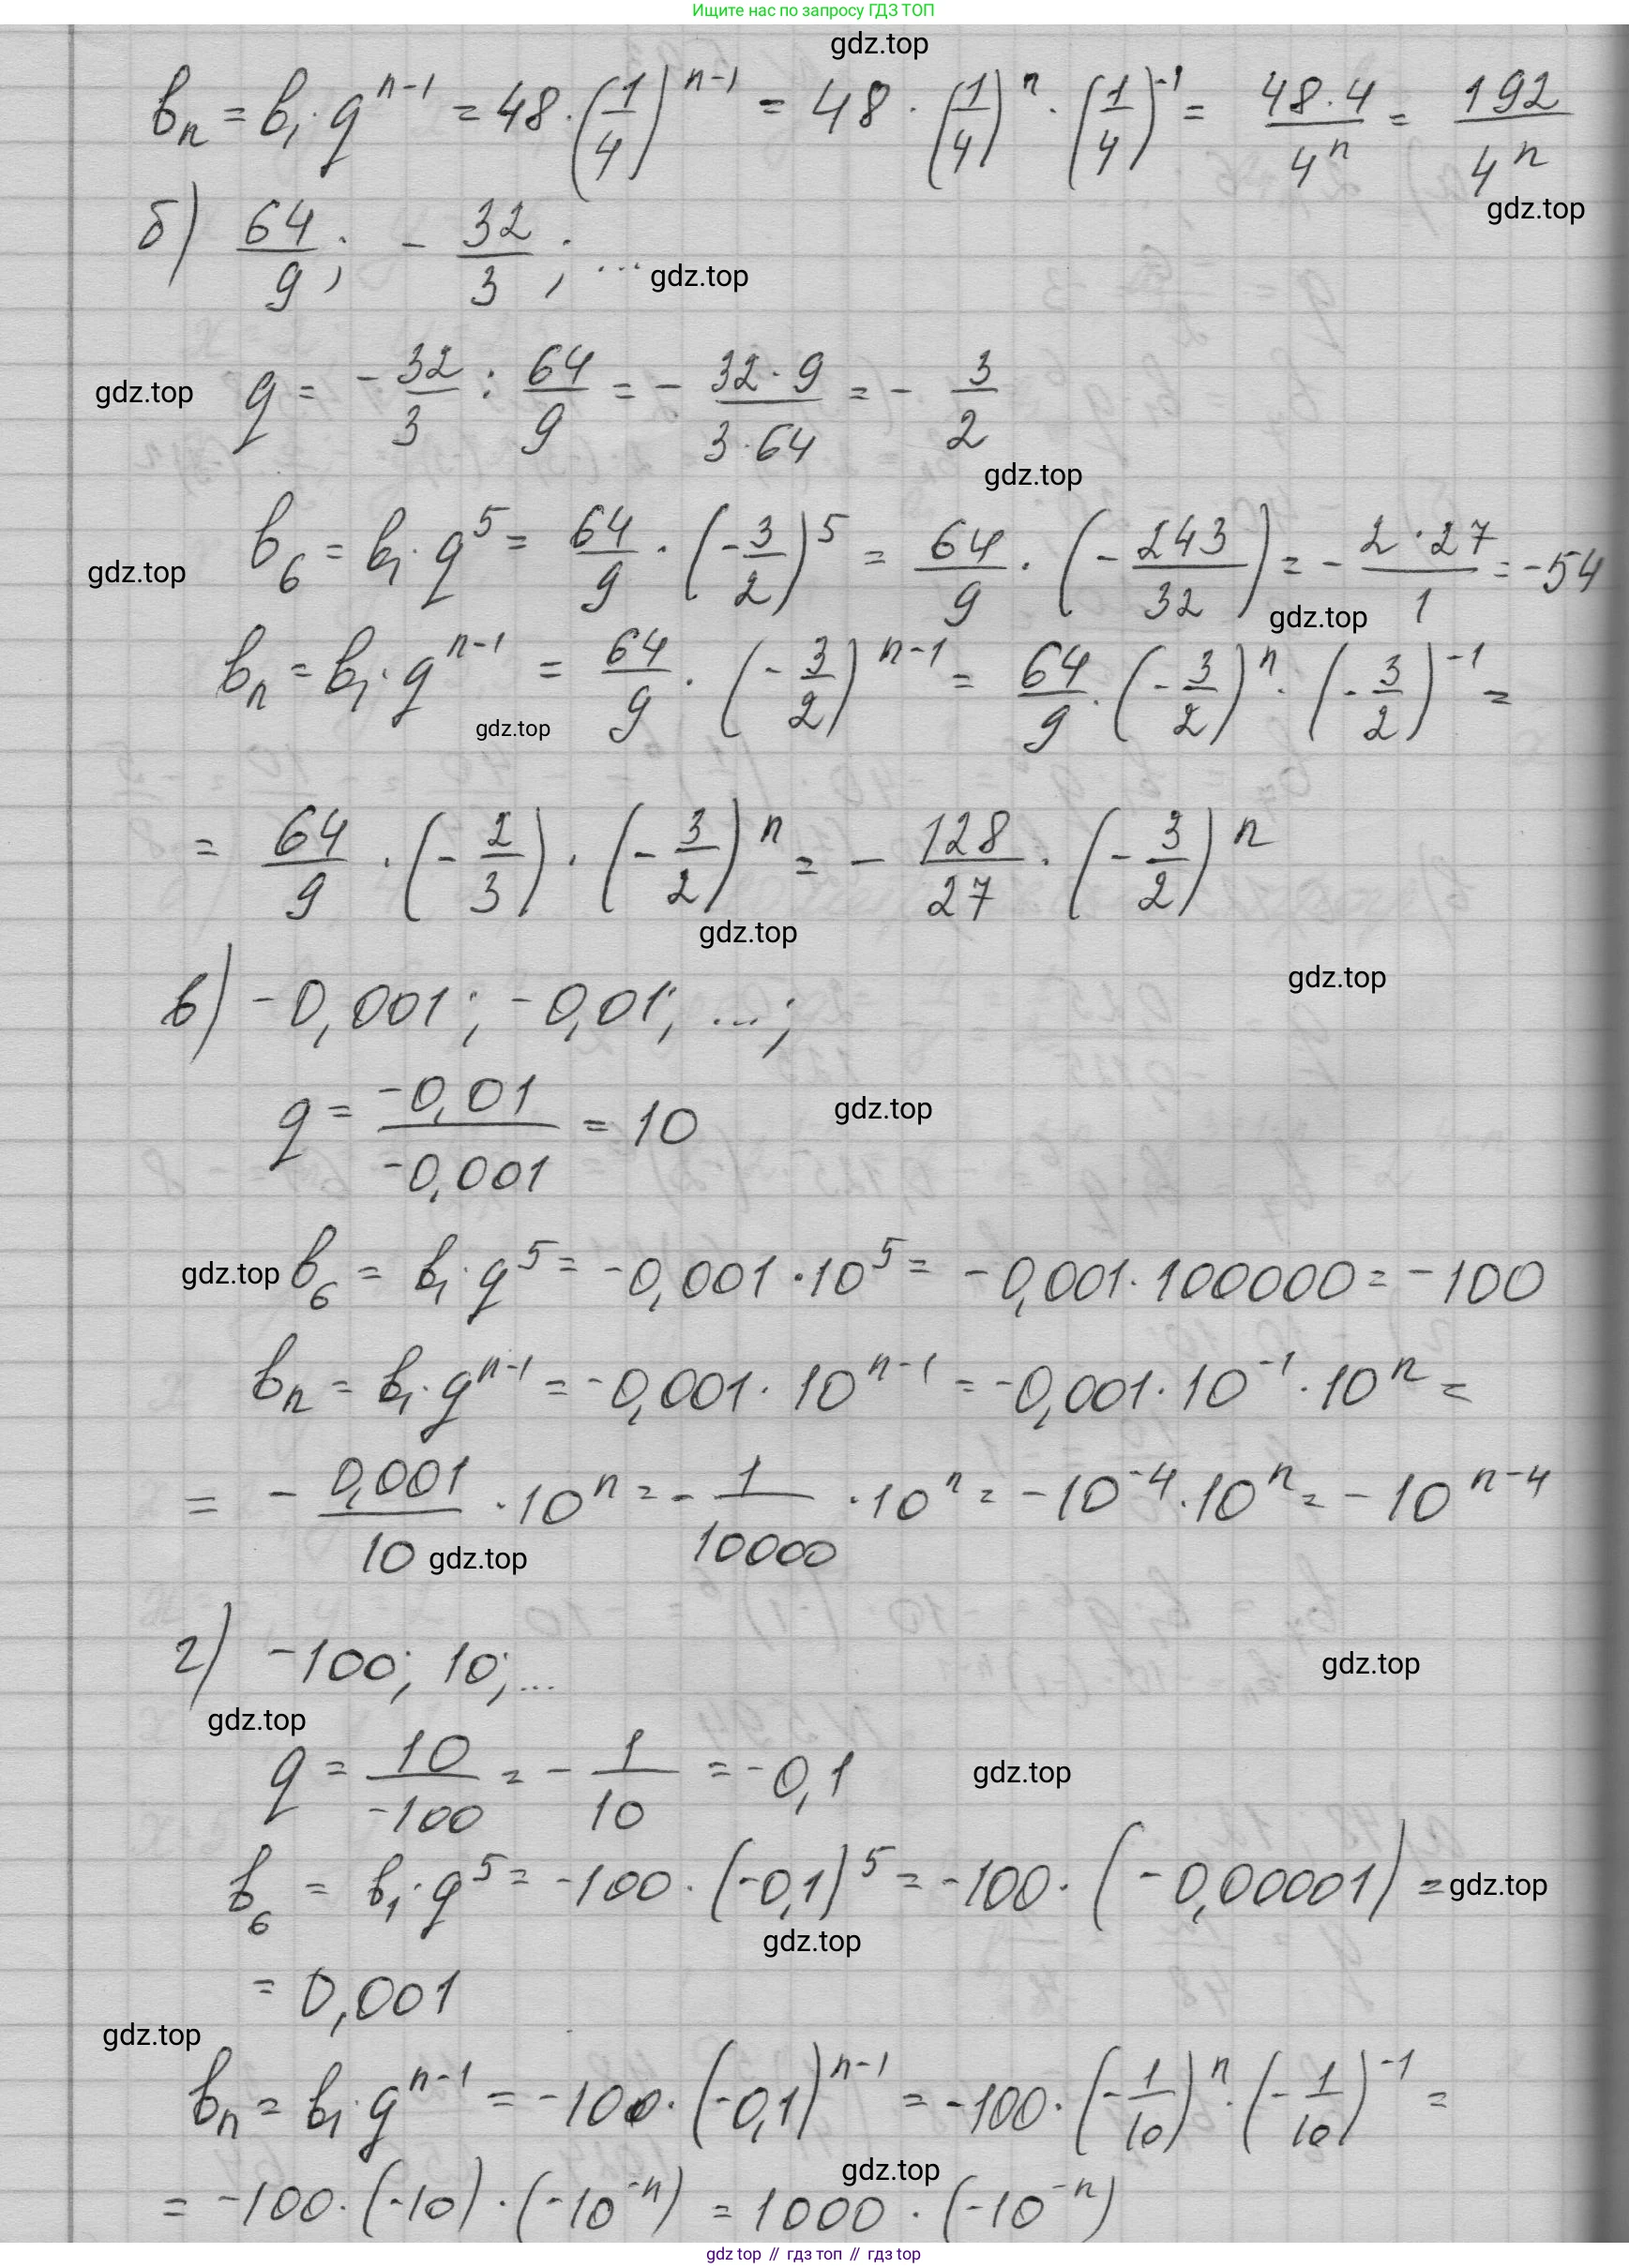 Ищите нас по запросу ГДЗ ТОП
gdz.top
bₙ = b₁·qⁿ⁻¹ = 48·(1/4)ⁿ⁻¹ = 48·(1/4)ⁿ·(1/4)⁻¹ = 48·4/4ⁿ = 192/4ⁿ
gdz.top
б) 64/9; -32/3; ...
gdz.top
gdz.top
q = -32/3 : 64/9 = -32·9/3·64 = -3/2
gdz.top
gdz.top
b₆ = b₁·q⁵ = 64/9·(-3/2)⁵ = 64/9·(-243/32) = -2·27/1 = -54
gdz.top
bₙ = b₁·qⁿ⁻¹ = 64/9·(-3/2)ⁿ⁻¹ = 64/9·(-3/2)ⁿ·(-3/2)⁻¹ =
gdz.top
= 64/9·(-2/3)·(-3/2)ⁿ = -128/27·(-3/2)ⁿ
gdz.top
gdz.top
в) -0,001; -0,01; ...;
q = -0,01/-0,001 = 10
gdz.top
gdz.top
b₆ = b₁·q⁵ = -0,001·10⁵ = -0,001·100000 = -100
bₙ = b₁·qⁿ⁻¹ = -0,001·10ⁿ⁻¹ = -0,001·10⁻¹·10ⁿ =
= -0,001/10·10ⁿ = -1/10000·10ⁿ = -10⁻⁴·10ⁿ = -10ⁿ⁻⁴
gdz.top
г) -100; 10; ...
gdz.top
gdz.top
q = 10/-100 = -1/10 = -0,1
gdz.top
b₆ = b₁·q⁵ = -100·(-0,1)⁵ = -100·(-0,00001) =
gdz.top
gdz.top
= 0,001
gdz.top
bₙ = b₁·qⁿ⁻¹ = -100·(-0,1)ⁿ⁻¹ = -100·(-1/10)ⁿ·(-1/10)⁻¹ =
gdz.top
= -100·(-10)·(-10⁻ⁿ) = 1000·(-10⁻ⁿ)
gdz top // гдз топ // гдз top